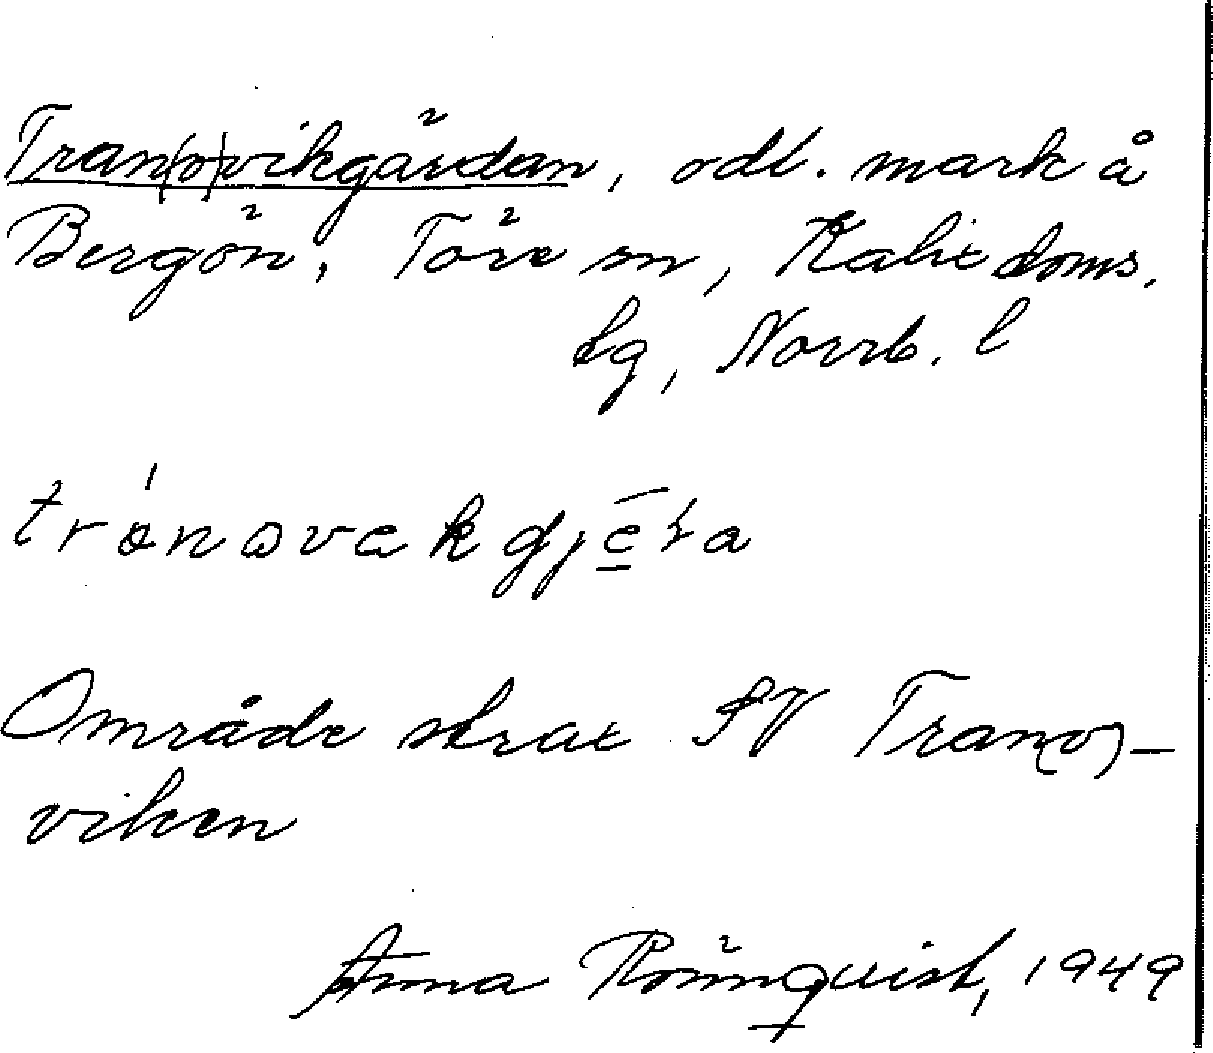 Tran(o)vikgärdan, odl. mark å
Bergön, Töre sn, Kalix doms.
lg, Norrb. l
Område strax SV Tran(o)-
viken
Anna Rönnquist, 1949